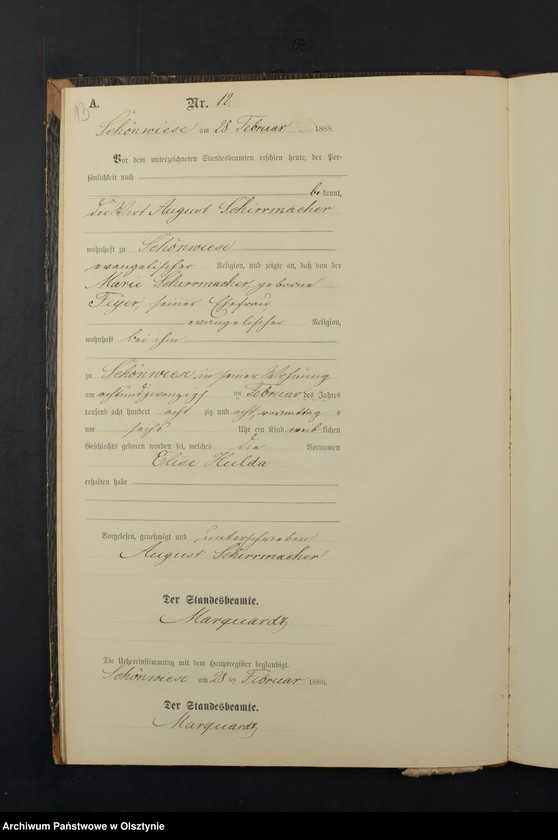 13
A.
Nr. 12
Schönwiese am 28 Februar 1888.
Vor dem unterzeichneten Standesbeamten erschien heute, der Per-
sönlichkeit nach
bekannt,
der Wirt August Schirrmacher
wohnhaft zu Schönwiese
evangelischer Religion, und zeigte an, daß von der
Marie Schirrmacher, geborne
seiner Ehefrau
evangelischer Religion,
wohnhaft bei ihm
zu Schönwiese, in seiner Wohnung
am achtundzwanzig im Februar des Jahres
tausend acht hundert acht zig und acht, vormittag s
um sechs Uhr ein Kind weib lichen
Geschlechts geboren worden sei, welches die Vornamen
Elise Hulda
erhalten habe
Vorgelesen, genehmigt und unterschrieben
August Schirrmacher
Der Standesbeamte.
Marquardt
Die Uebereinstimmung mit dem Hauptregister beglaubigt.
Schönwiese am 28 Februar 1888.
Der Standesbeamte.
Marquardt
Archiwum Państwowe w Olsztynie